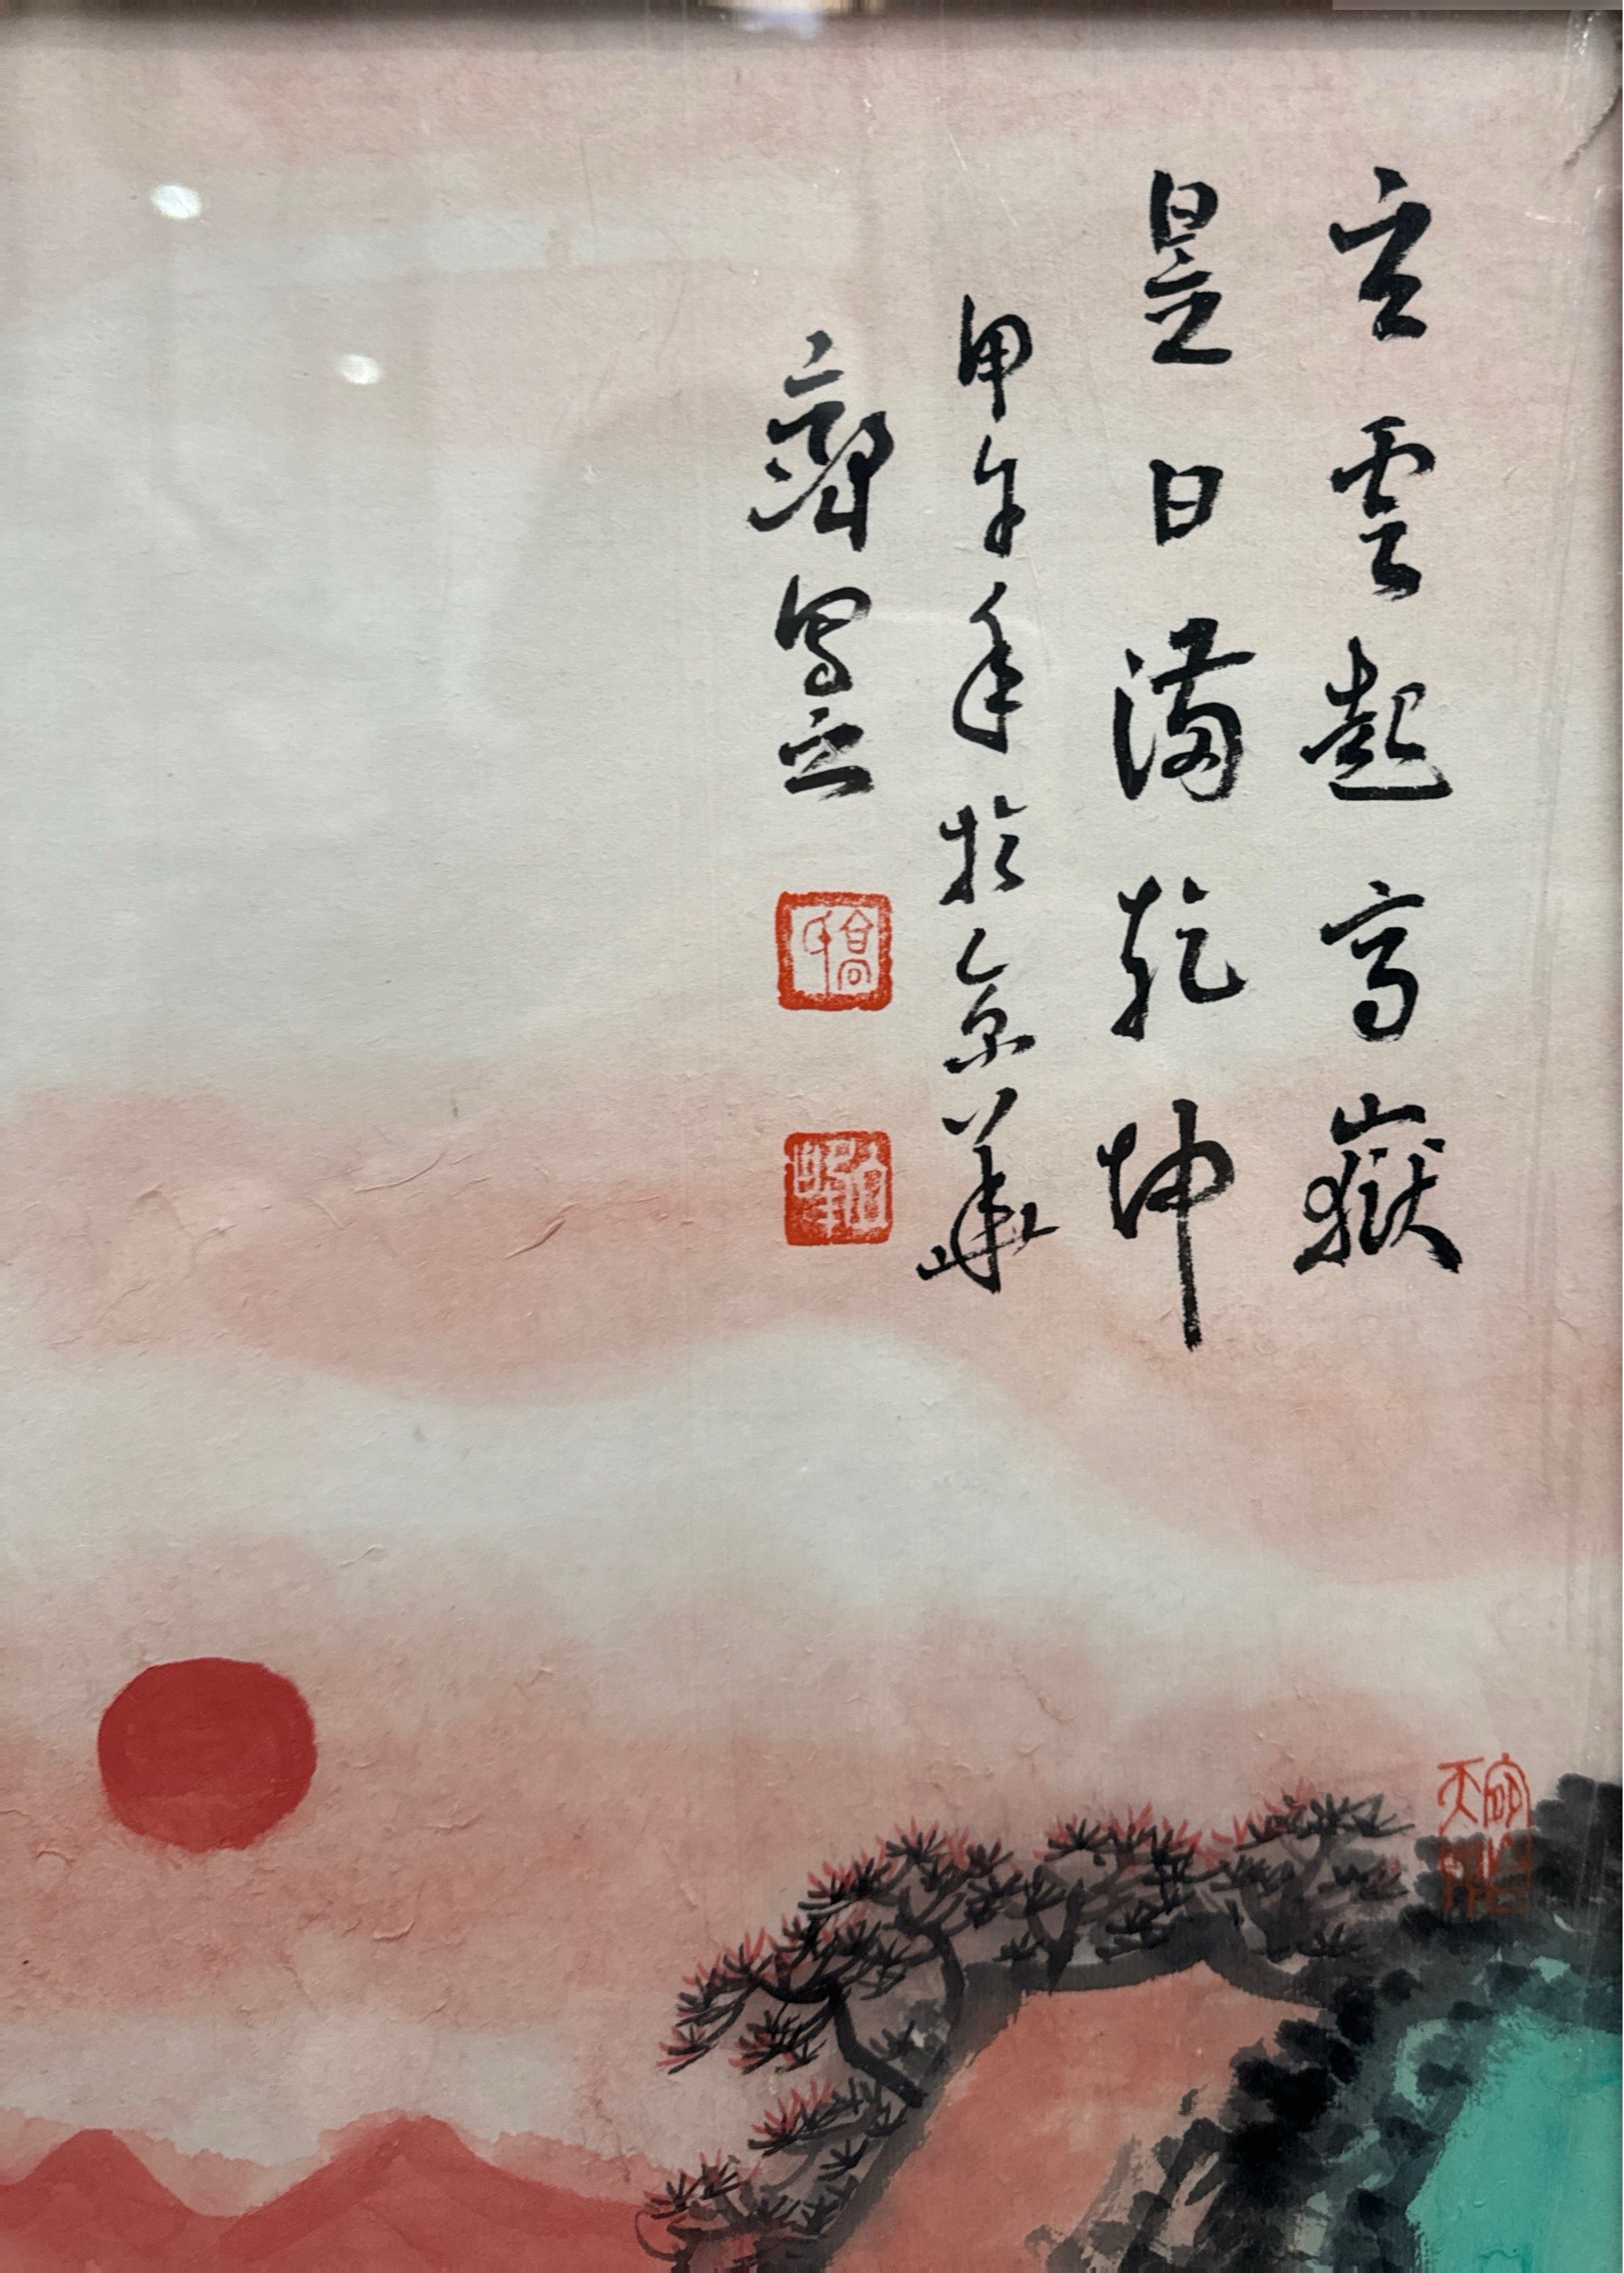 玄雲起高嶽
昱日滿乾坤
甲午年於京華
齋寫之